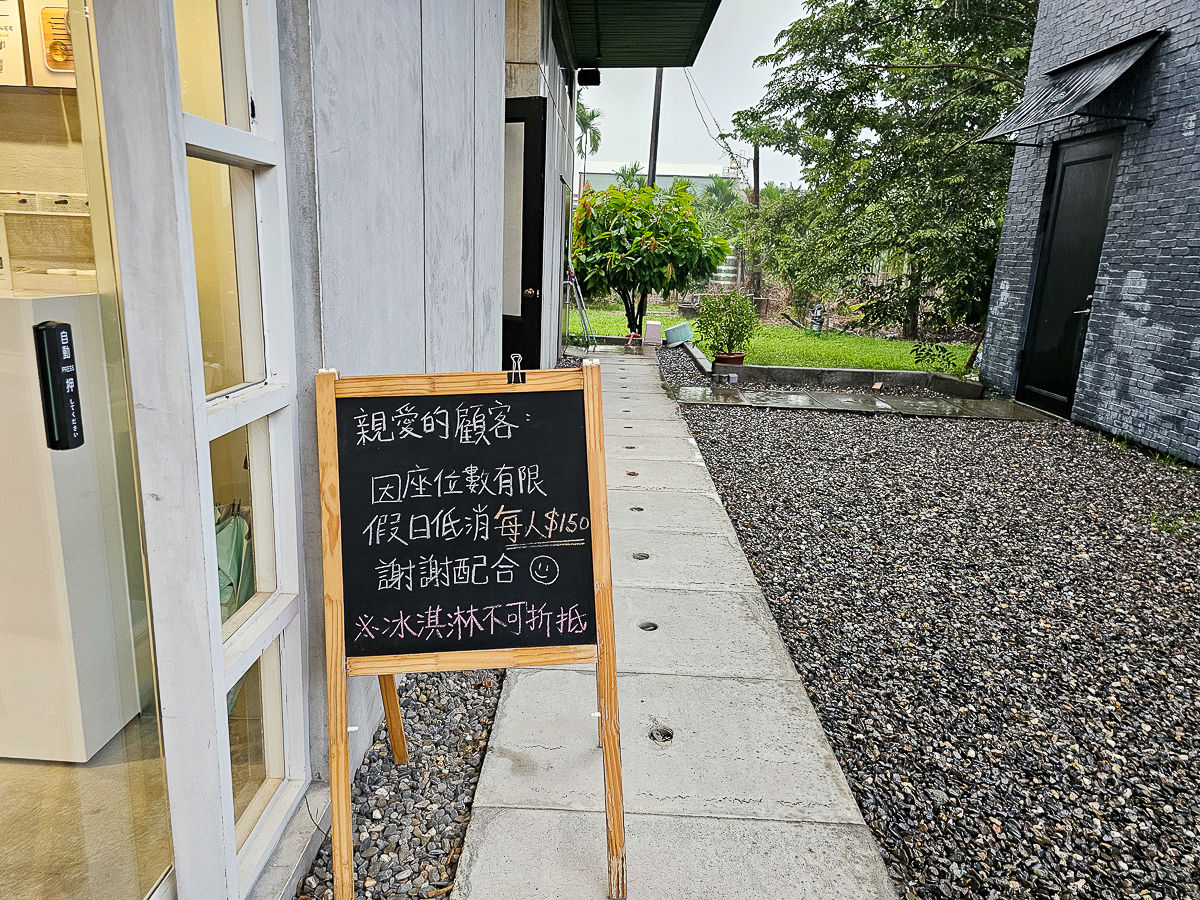 自動
PRESS
押
してください
親愛的顧客：
因座位數有限
假日低消每人$150
謝謝配合
※冰淇淋不可折抵